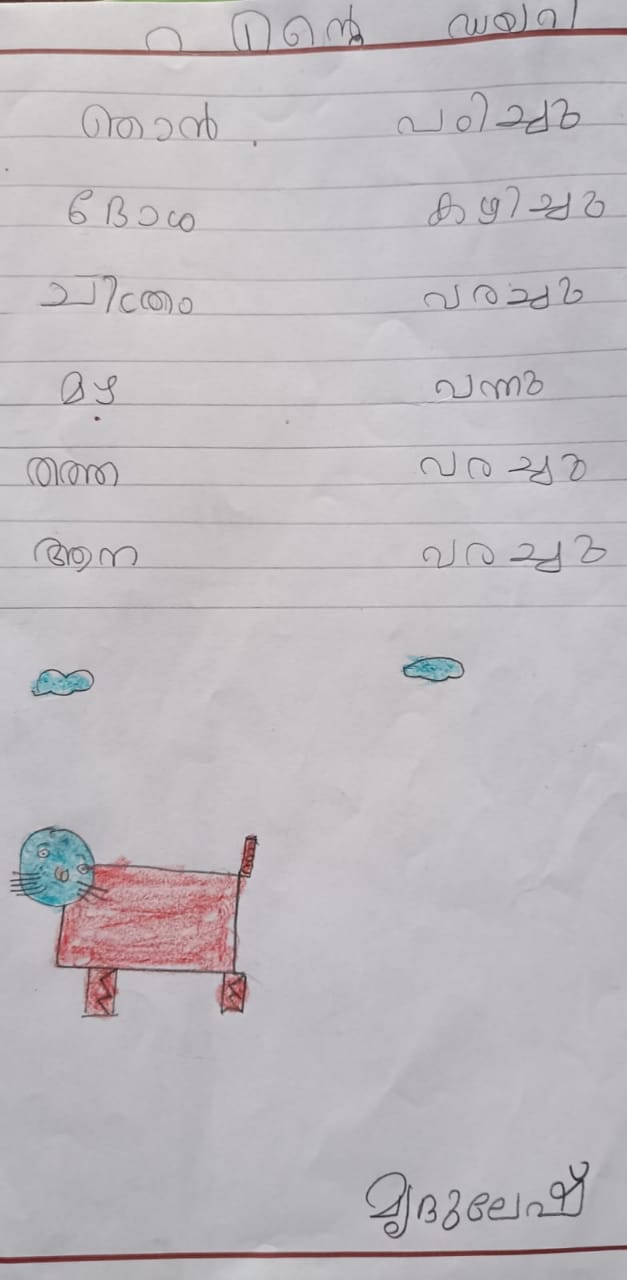 എന്റെ ഡയറി
ഞാൻ പഠിച്ചു
ദോശ കഴിച്ചു
ചിത്രം വരച്ചു
മഴ വന്നു
തത്ത വരച്ചു
ആന വരച്ചു
മൃദുലേഷ്